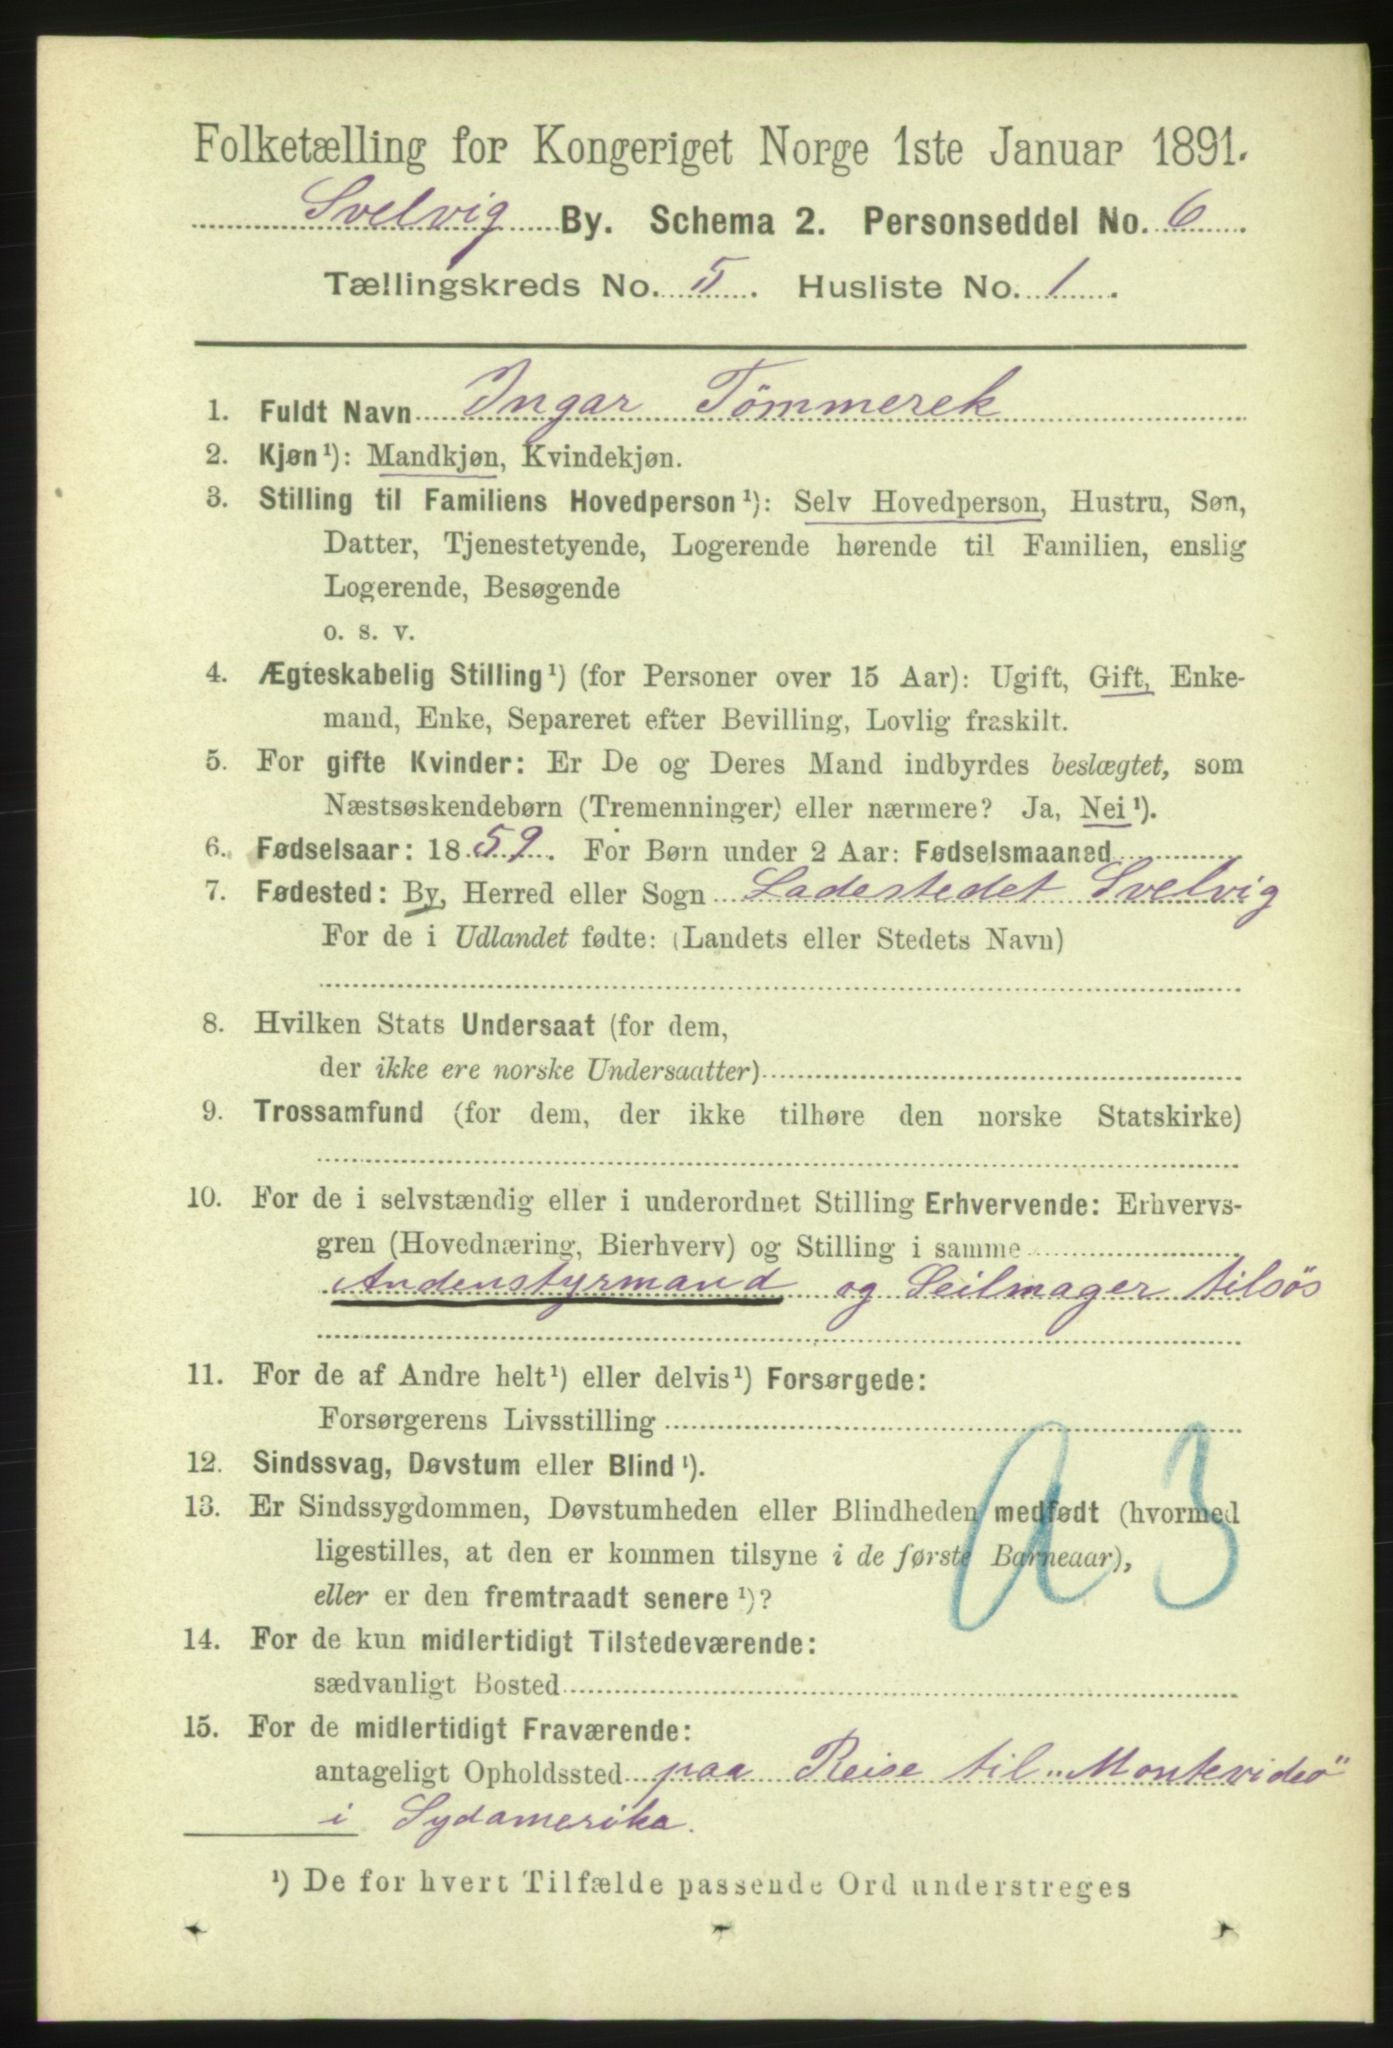 Folketælling for Kongeriget Norge 1ste Januar 1891.
Svelvig By. Schema 2. Personseddel No. 6.
Tællingskreds No. 5. Husliste No. 1.
1. Fuldt Navn Ingar Tömmerek
2. Kjøn¹): Mandkjøn, Kvindekjøn.
3. Stilling til Familiens Hovedperson¹): Selv Hovedperson, Hustru, Søn,
Datter, Tjenestetyende, Logerende hørende til Familien, enslig
Logerende, Besøgende
o. s. v.
4. Ægteskabelig Stilling¹) (for Personer over 15 Aar): Ugift, Gift, Enke-
mand, Enke, Separeret efter Bevilling, Lovlig fraskilt.
5. For gifte Kvinder: Er De og Deres Mand indbyrdes beslægtet, som
Næstsøskendebørn (Tremenninger) eller nærmere? Ja, Nei¹).
6. Fødselsaar: 1859. For Børn under 2 Aar: Fødselsmaaned
7. Fødested: By, Herred eller Sogn Ladestedet Svelvig
For de i Udlandet fødte: (Landets eller Stedets Navn)
8. Hvilken Stats Undersaat (for dem,
der ikke ere norske Undersaatter)
9. Trossamfund (for dem, der ikke tilhøre den norske Statskirke)
10. For de i selvstændig eller i underordnet Stilling Erhvervende: Erhvervs-
gren (Hovednæring, Bierhverv) og Stilling i samme
Andenstyrmand og Seilmager tilsøs
11. For de af Andre helt¹) eller delvis¹) Forsørgede:
Forsørgerens Livsstilling
12. Sindssvag, Døvstum eller Blind¹).
13. Er Sindssygdommen, Døvstumheden eller Blindheden medfødt (hvormed
ligestilles, at den er kommen tilsyne i de første Barneaar),
eller er den fremtraadt senere¹)?
a 3
14. For de kun midlertidigt Tilstedeværende:
sædvanligt Bosted
15. For de midlertidigt Fraværende:
antageligt Opholdssted paa Reise til „Montevideo"
i Sydamerika.
¹) De for hvert Tilfælde passende Ord understreges